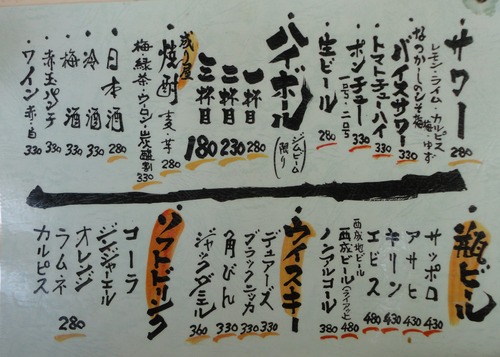 ・サワー 280
レモン・ライム・カルピス
梅・ゆず
なつかしのしそ梅
バイスサワー 330
トマトチューハイ 330
・ポンチュー 330
一号・二号
・生ビール 280
・ハイボール
(ジムビーム限り)
一杯目 280
二杯目 230
三杯目 180
成り屋
・焼酎 麦・芋 280
梅・緑茶・ウーロン・炭酸割 330
・日本酒 280
・冷酒 330
・梅酒 330
・赤玉パンチ 330
・ワイン 赤・白 330
・瓶ビール
サッポロ 430
アサヒ 430
キリン 430
エビス 480
西成地ビール
西成ビール(ライブエール) 480
ノンアルコール 380
・ウイスキー
デュアーズ 330
ブラックニッカ 330
角びん 330
ジャックダニエル 360
・ソフトドリンク
コーラ
ジンジャーエール
オレンジ
ラムネ
カルピス
280